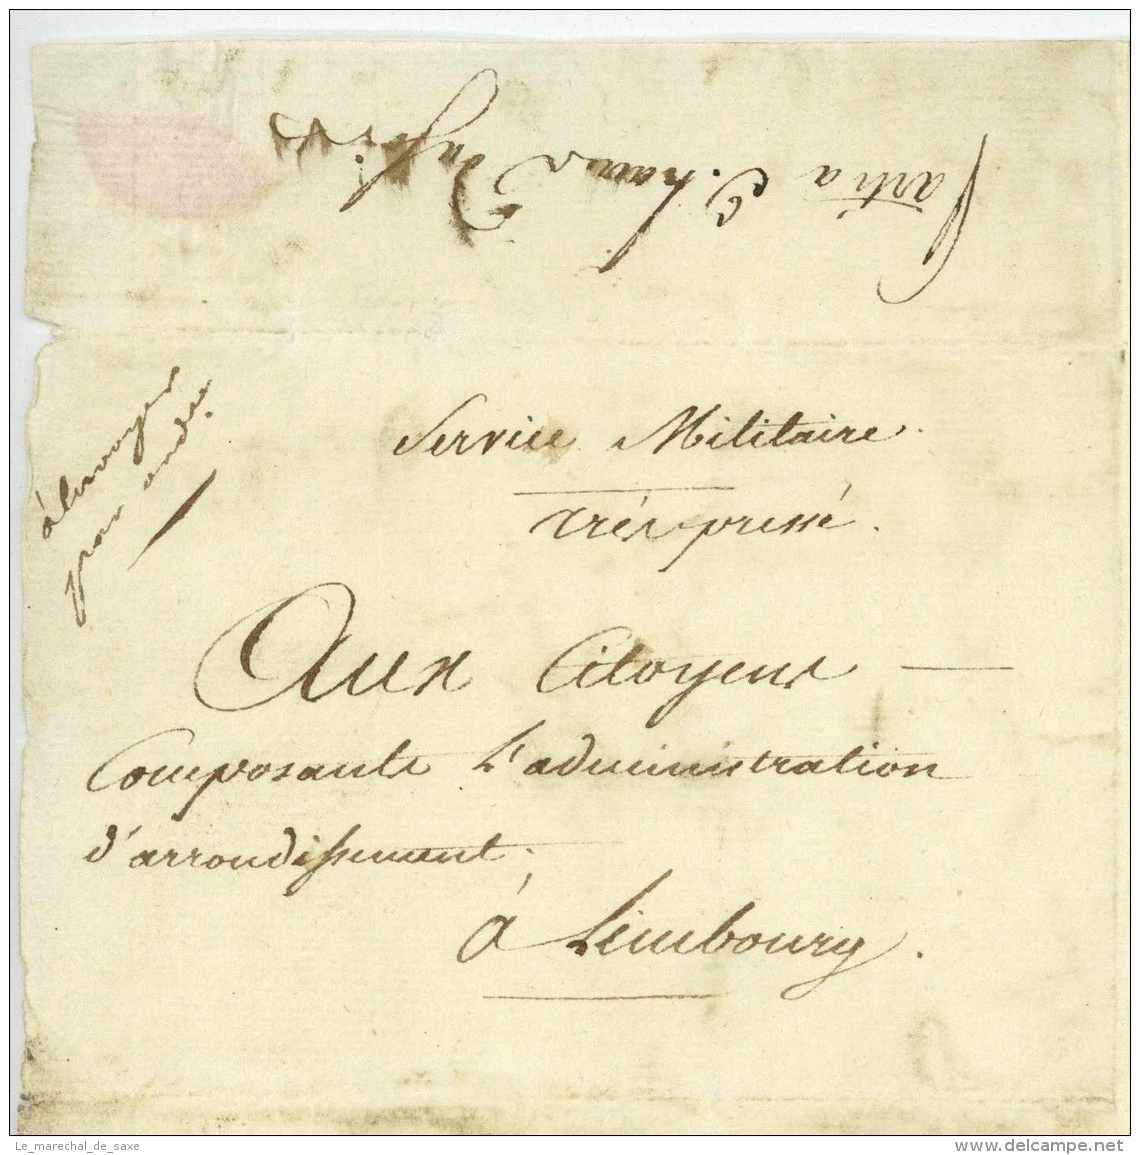 Parti a 8. heures du soir
à Envoyer
par ordre.
Service Militaire.
très pressé.
Aux Citoyens
Composants L'administration
d'arrondissement.
à Limbourg.
Le_marechal_de_saxe
www.delcampe.net